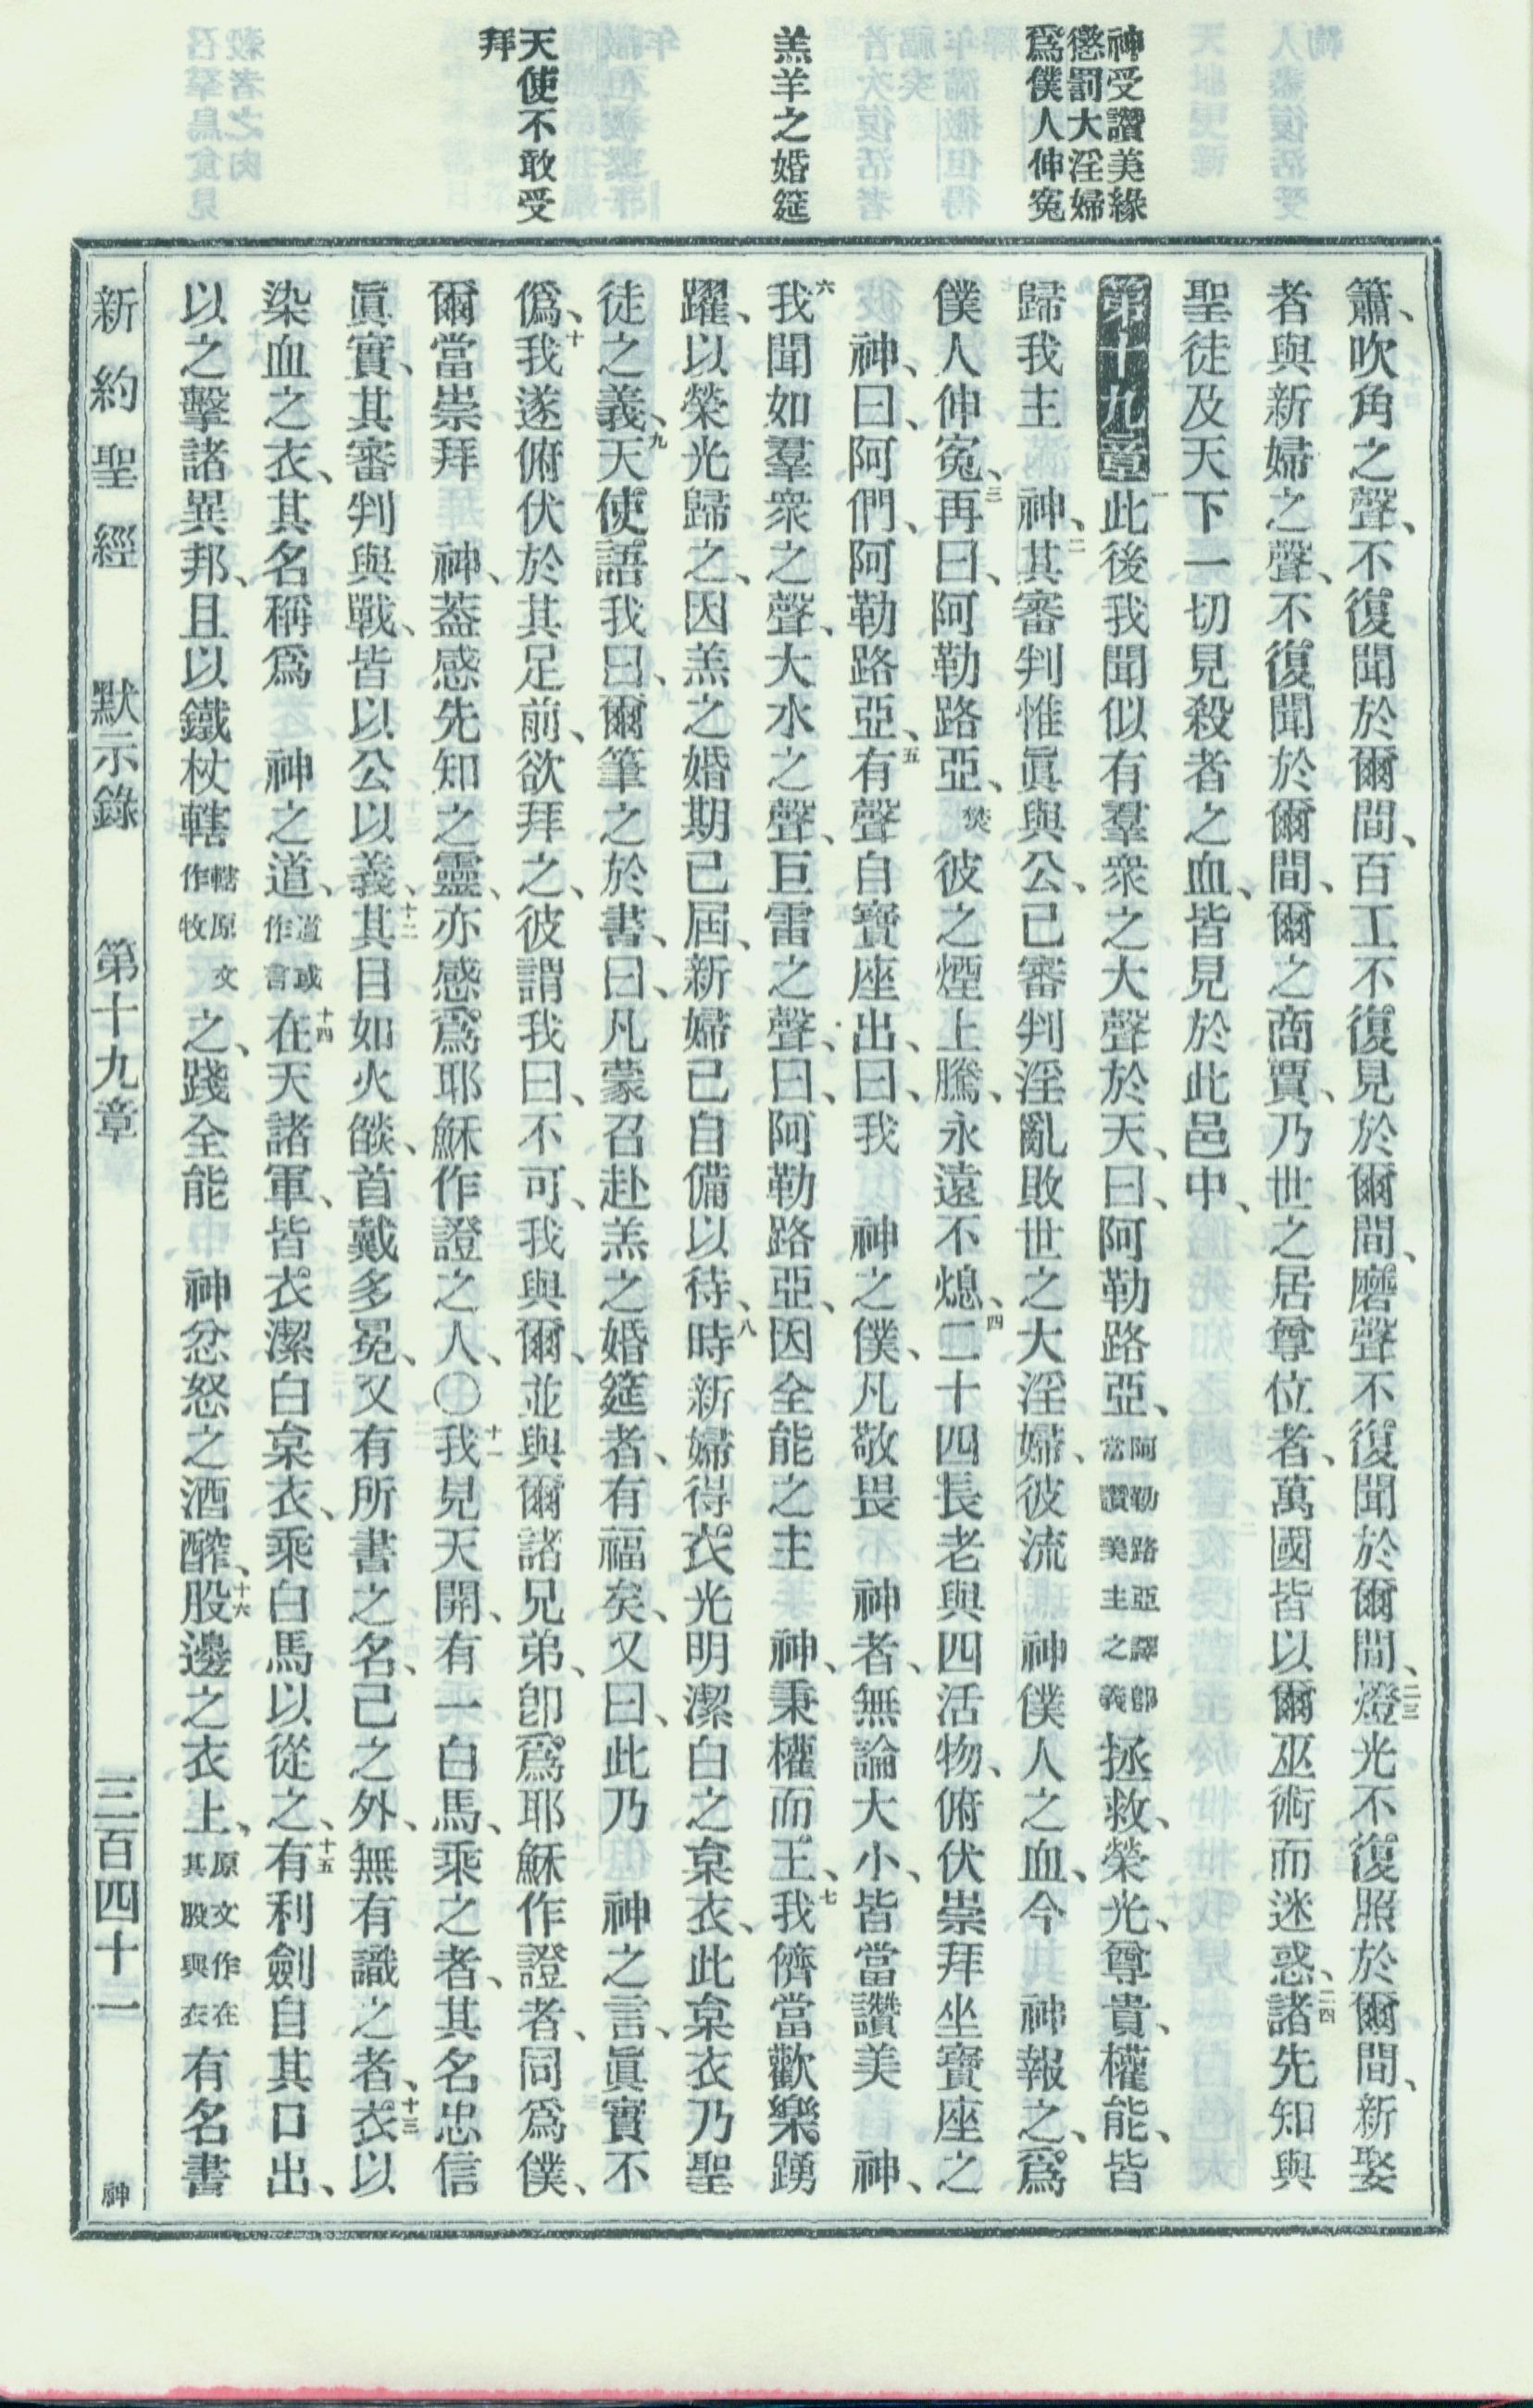 神受讚美緣
懲罰大淫婦
爲僕人伸冤
羔羊之婚筵
天使不敢受
拜
簫、吹角之聲、不復聞於爾間、百工不復見於爾間、磨聲不復聞於爾間、二三燈光不復照於爾間、新娶
者與新婦之聲、不復聞於爾間、爾之商賈、乃世之居尊位者、萬國皆以爾巫術而迷惑、二四諸先知與
聖徒及天下一切見殺者之血、皆見於此邑中、
第十九章 一此後我聞似有羣衆之大聲於天、曰、阿勒路亞、阿勒路亞譯卽當讚美主之義拯救、榮光、尊貴、權能、皆
歸我主 神、二其審判惟眞與公、已審判淫亂敗世之大淫婦、彼流 神僕人之血、今 神報之、爲
僕人伸冤、三再曰、阿勒路亞、焚彼之煙上騰、永遠不熄、四二十四長老與四活物、俯伏崇拜坐寶座之
神、曰、阿們、阿勒路亞、五有聲自寶座出、曰、我 神之僕、凡敬畏 神者、無論大小、皆當讚美 神、
六我聞如羣衆之聲、大水之聲、巨雷之聲、曰、阿勒路亞、因全能之主 神、秉權而王、七我儕當歡樂踴
躍、以榮光歸之、因羔之婚期已屆、新婦已自備以待、八時新婦得衣光明潔白之枲衣、此枲衣乃聖
徒之義、九天使語我曰、爾筆之於書、曰、凡蒙召赴羔之婚筵者、有福矣、又曰、此乃 神之言、眞實不
僞、十我遂俯伏於其足前、欲拜之、彼謂我曰、不可、我與爾、並與爾諸兄弟、卽爲耶穌作證者、同爲僕、
爾當崇拜 神、蓋感先知之靈、亦感爲耶穌作證之人、〇十一我見天開、有一白馬、乘之者、其名忠信
眞實、其審判與戰、皆以公以義、十二其目如火燄、首戴多冕、又有所書之名、己之外、無有識之者、十三衣以
染血之衣、其名稱爲 神之道、道或作言十四在天諸軍、皆衣潔白枲衣、乘白馬以從之、十五有利劍自其口出、
以之擊諸異邦、且以鐵杖轄轄原文作牧之、踐全能 神忿怒之酒醡、十六股邊之衣上、原文作在其股與衣有名書
新約聖經 默示錄 第十九章 三百四十一 神